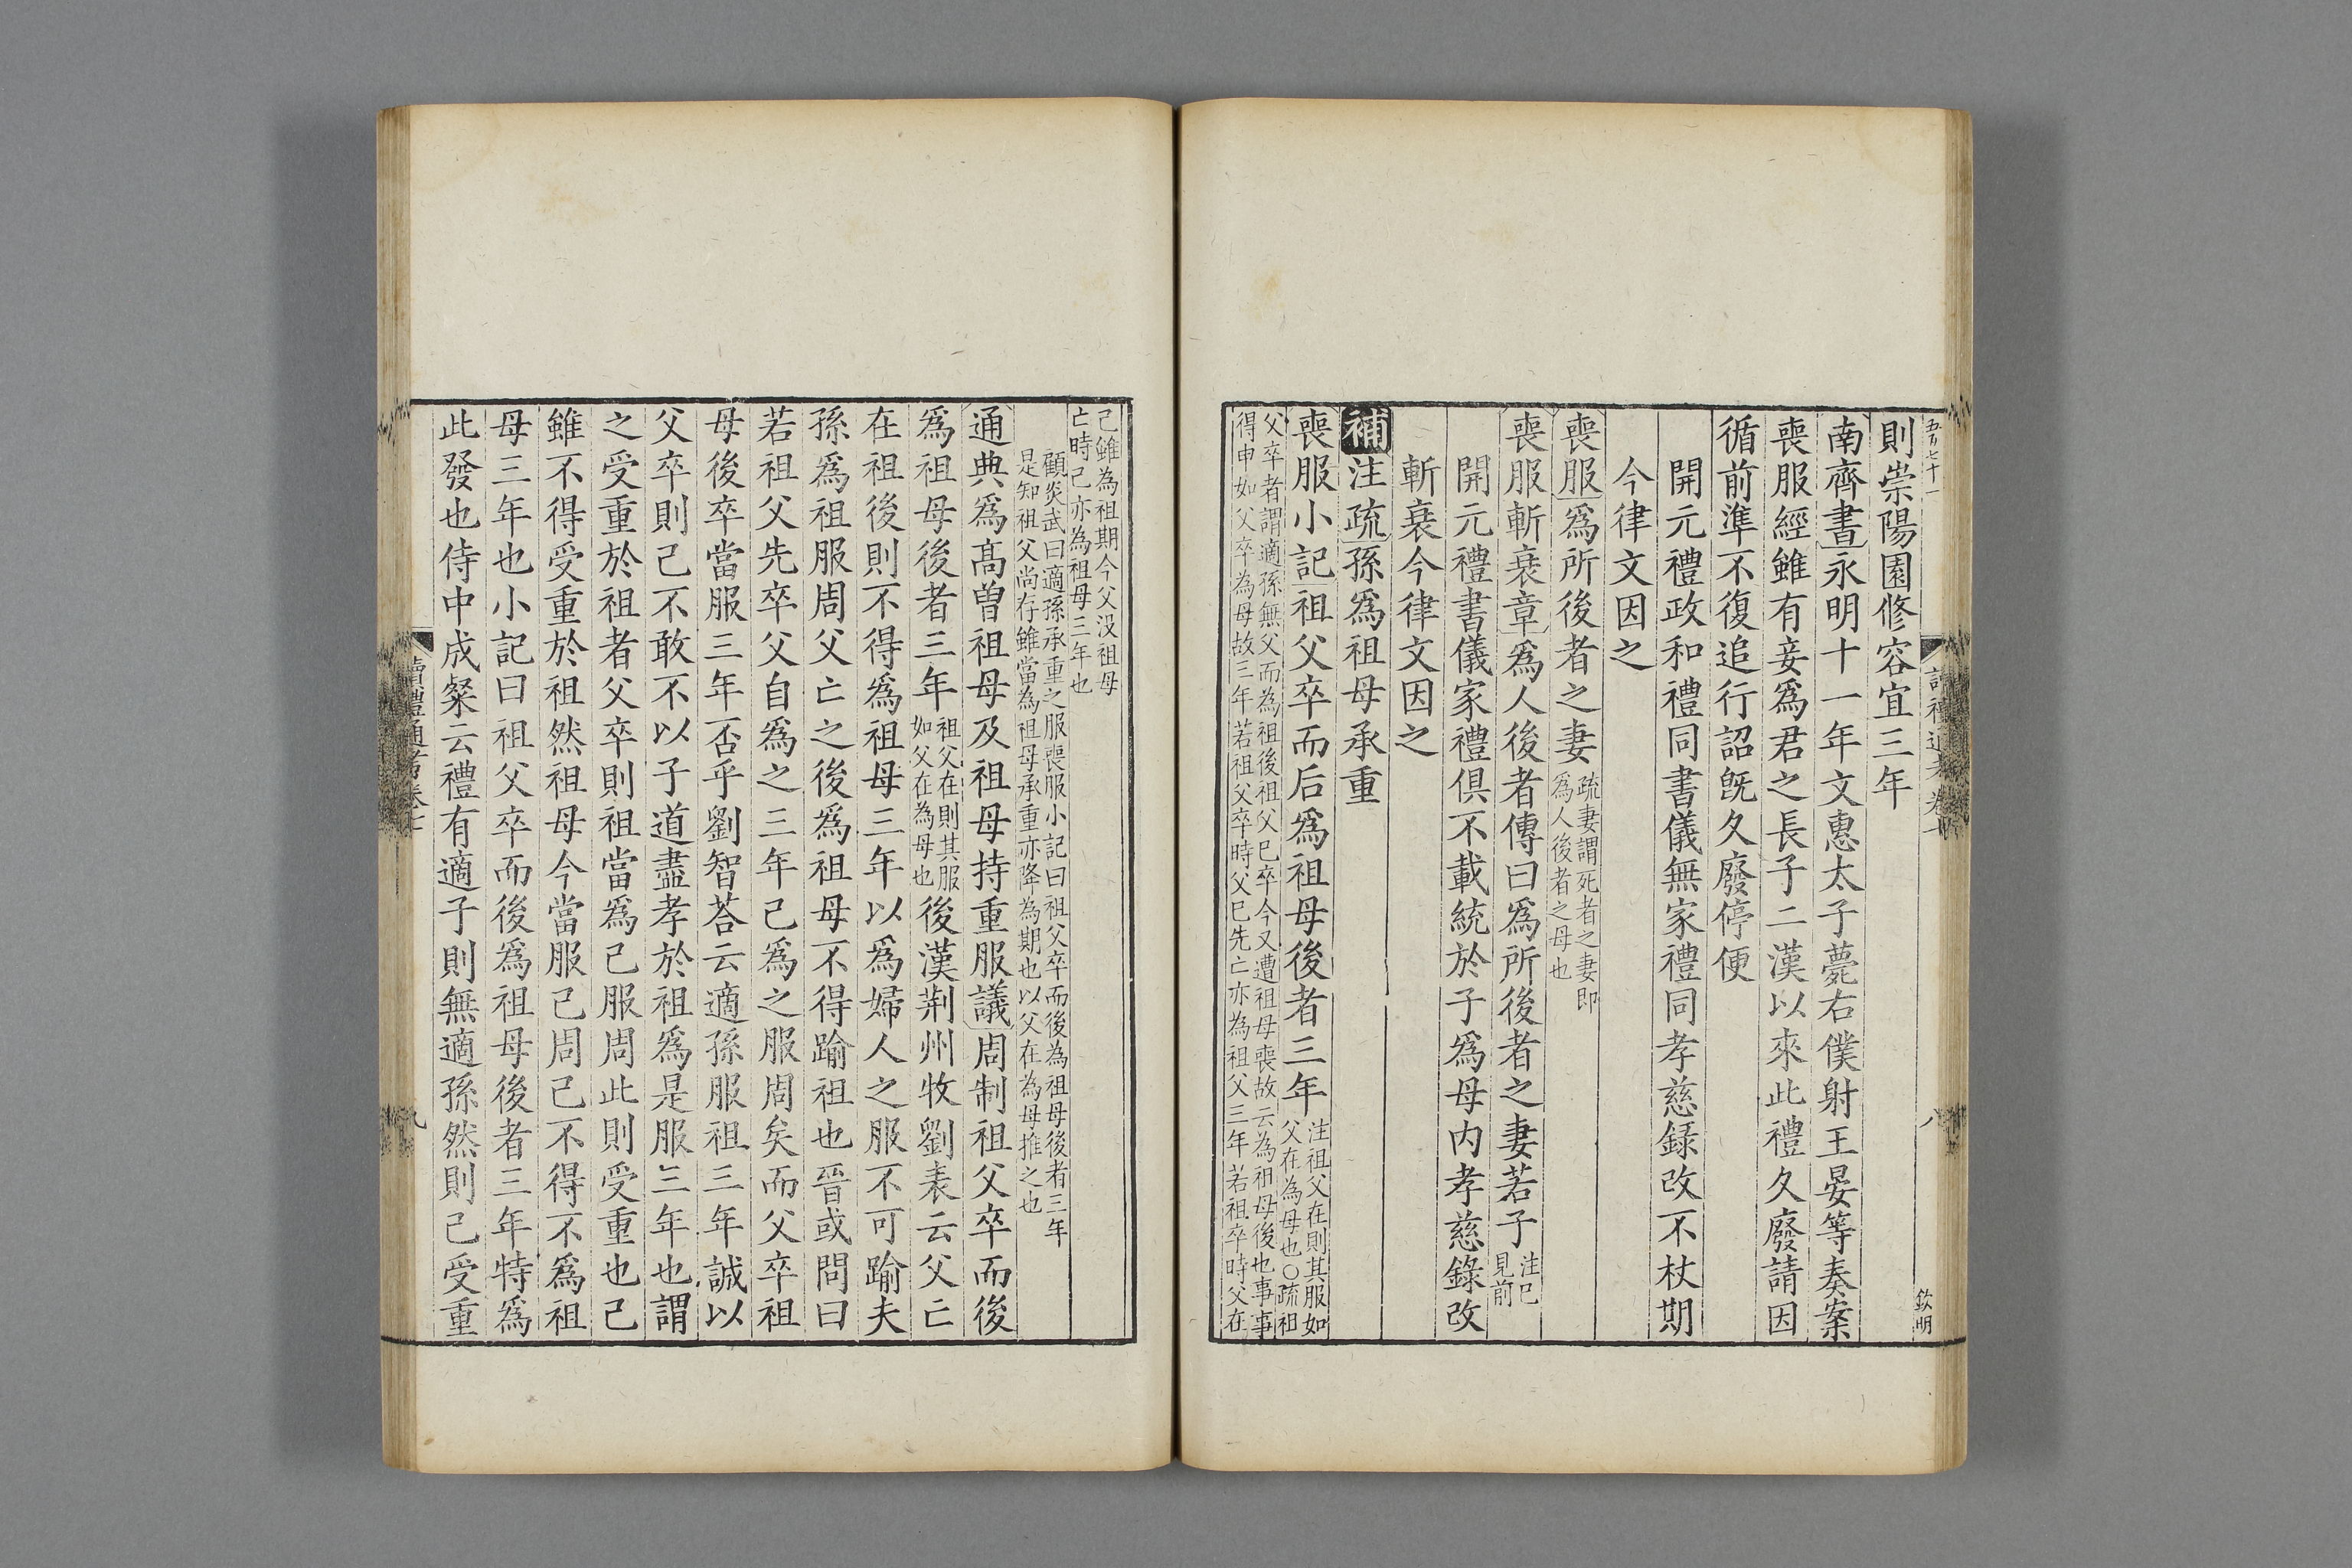 則崇陽園修容宜三年
南齊書永明十一年文惠太子薨右僕射王晏等奏案
喪服經雖有妾爲君之長子二漢以來此禮久廢請因
循前準不復追行詔旣久廢停便
開元禮政和禮同書儀無家禮同孝慈録改不杖期
今律文因之
喪服爲所後者之妻疏妻謂死者之妻即
爲人後者之母也
喪服斬衰章爲人後者傳曰爲所後者之妻若子注已
見前
開元禮書儀家禮俱不載統於子爲母内孝慈錄改
斬衰今律文因之
補注疏孫爲祖母承重
喪服小記祖父卒而后爲祖母後者三年注祖父在則其服如
父在為母也○疏祖
父卒者謂適孫無父而為祖後祖父已卒今又遭祖母喪故云為祖母後也事事
得申如父卒為母故三年若祖父卒時父已先亡亦為祖父三年若祖卒時父在
己雖為祖期今父没祖母
亡時己亦為祖母三年也
顧炎武曰適孫承重之服喪服小記曰祖父卒而後為祖母後者三年
是知祖父尚存雖當為祖母承重亦降為期也以父在為母推之也
通典爲高曾祖母及祖母持重服議周制祖父卒而後
爲祖母後者三年祖父在則其服
如父在為母也後漢荆州牧劉表云父亡
在祖後則不得爲祖母三年以爲婦人之服不可踰夫
孫爲祖服周父亡之後爲祖母不得踰祖也晉或問曰
若祖父先卒父自爲之三年己爲之服周矣而父卒祖
母後卒當服三年否乎劉智荅云適孫服祖三年誠以
父卒則己不敢不以子道盡孝於祖爲是服三年也謂
之受重於祖者父卒則祖當爲己服周此則受重也己
雖不得受重於祖然祖母今當服己周己不得不爲祖
母三年也小記曰祖父卒而後爲祖母後者三年特爲
此發也侍中成粲云禮有適子則無適孫然則己受重
八
欽明
九